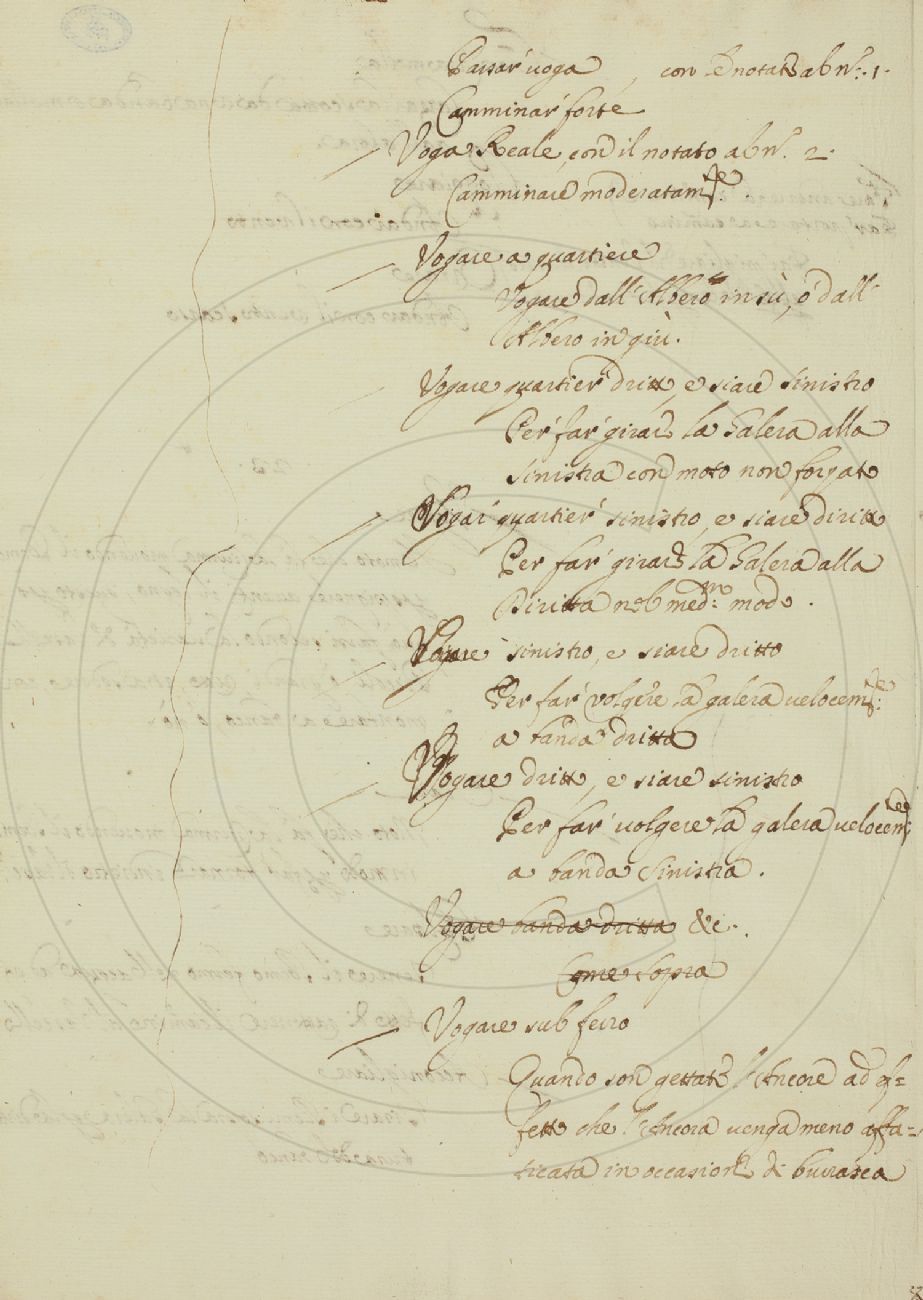 Passar' voga, con le notate ab n.° 1.
Camminar' forte
Voga Reale, con il notato ab n.° 2.
Camminare moderatam.te
Vogare a quartiere
Vogare dall' Albero in sù, ó dall'
Albero in giù.
Vogare quartier' dritto, e siare sinistro
Per far' girare la Galera alla
sinistra con moto non forzato
Vogar' quartier' sinistro, e siare diritto
Per far' girare la Galera alla
Diritta nel med.mo modo.
Vogare sinistro, e siare dritto
Per far' volgere la galera velocem.te
a banda dritta
Vogare dritto, e siare sinistro
Per far' volgere la galera velocem.te
a banda sinistra.
Vogare banda dritta &c.
Come sopra
Vogare sul ferro
Quando son gettate l'Ancore ad ef=
fetto che l'Ancora venga meno affa=
ticata in occasione di burrasca